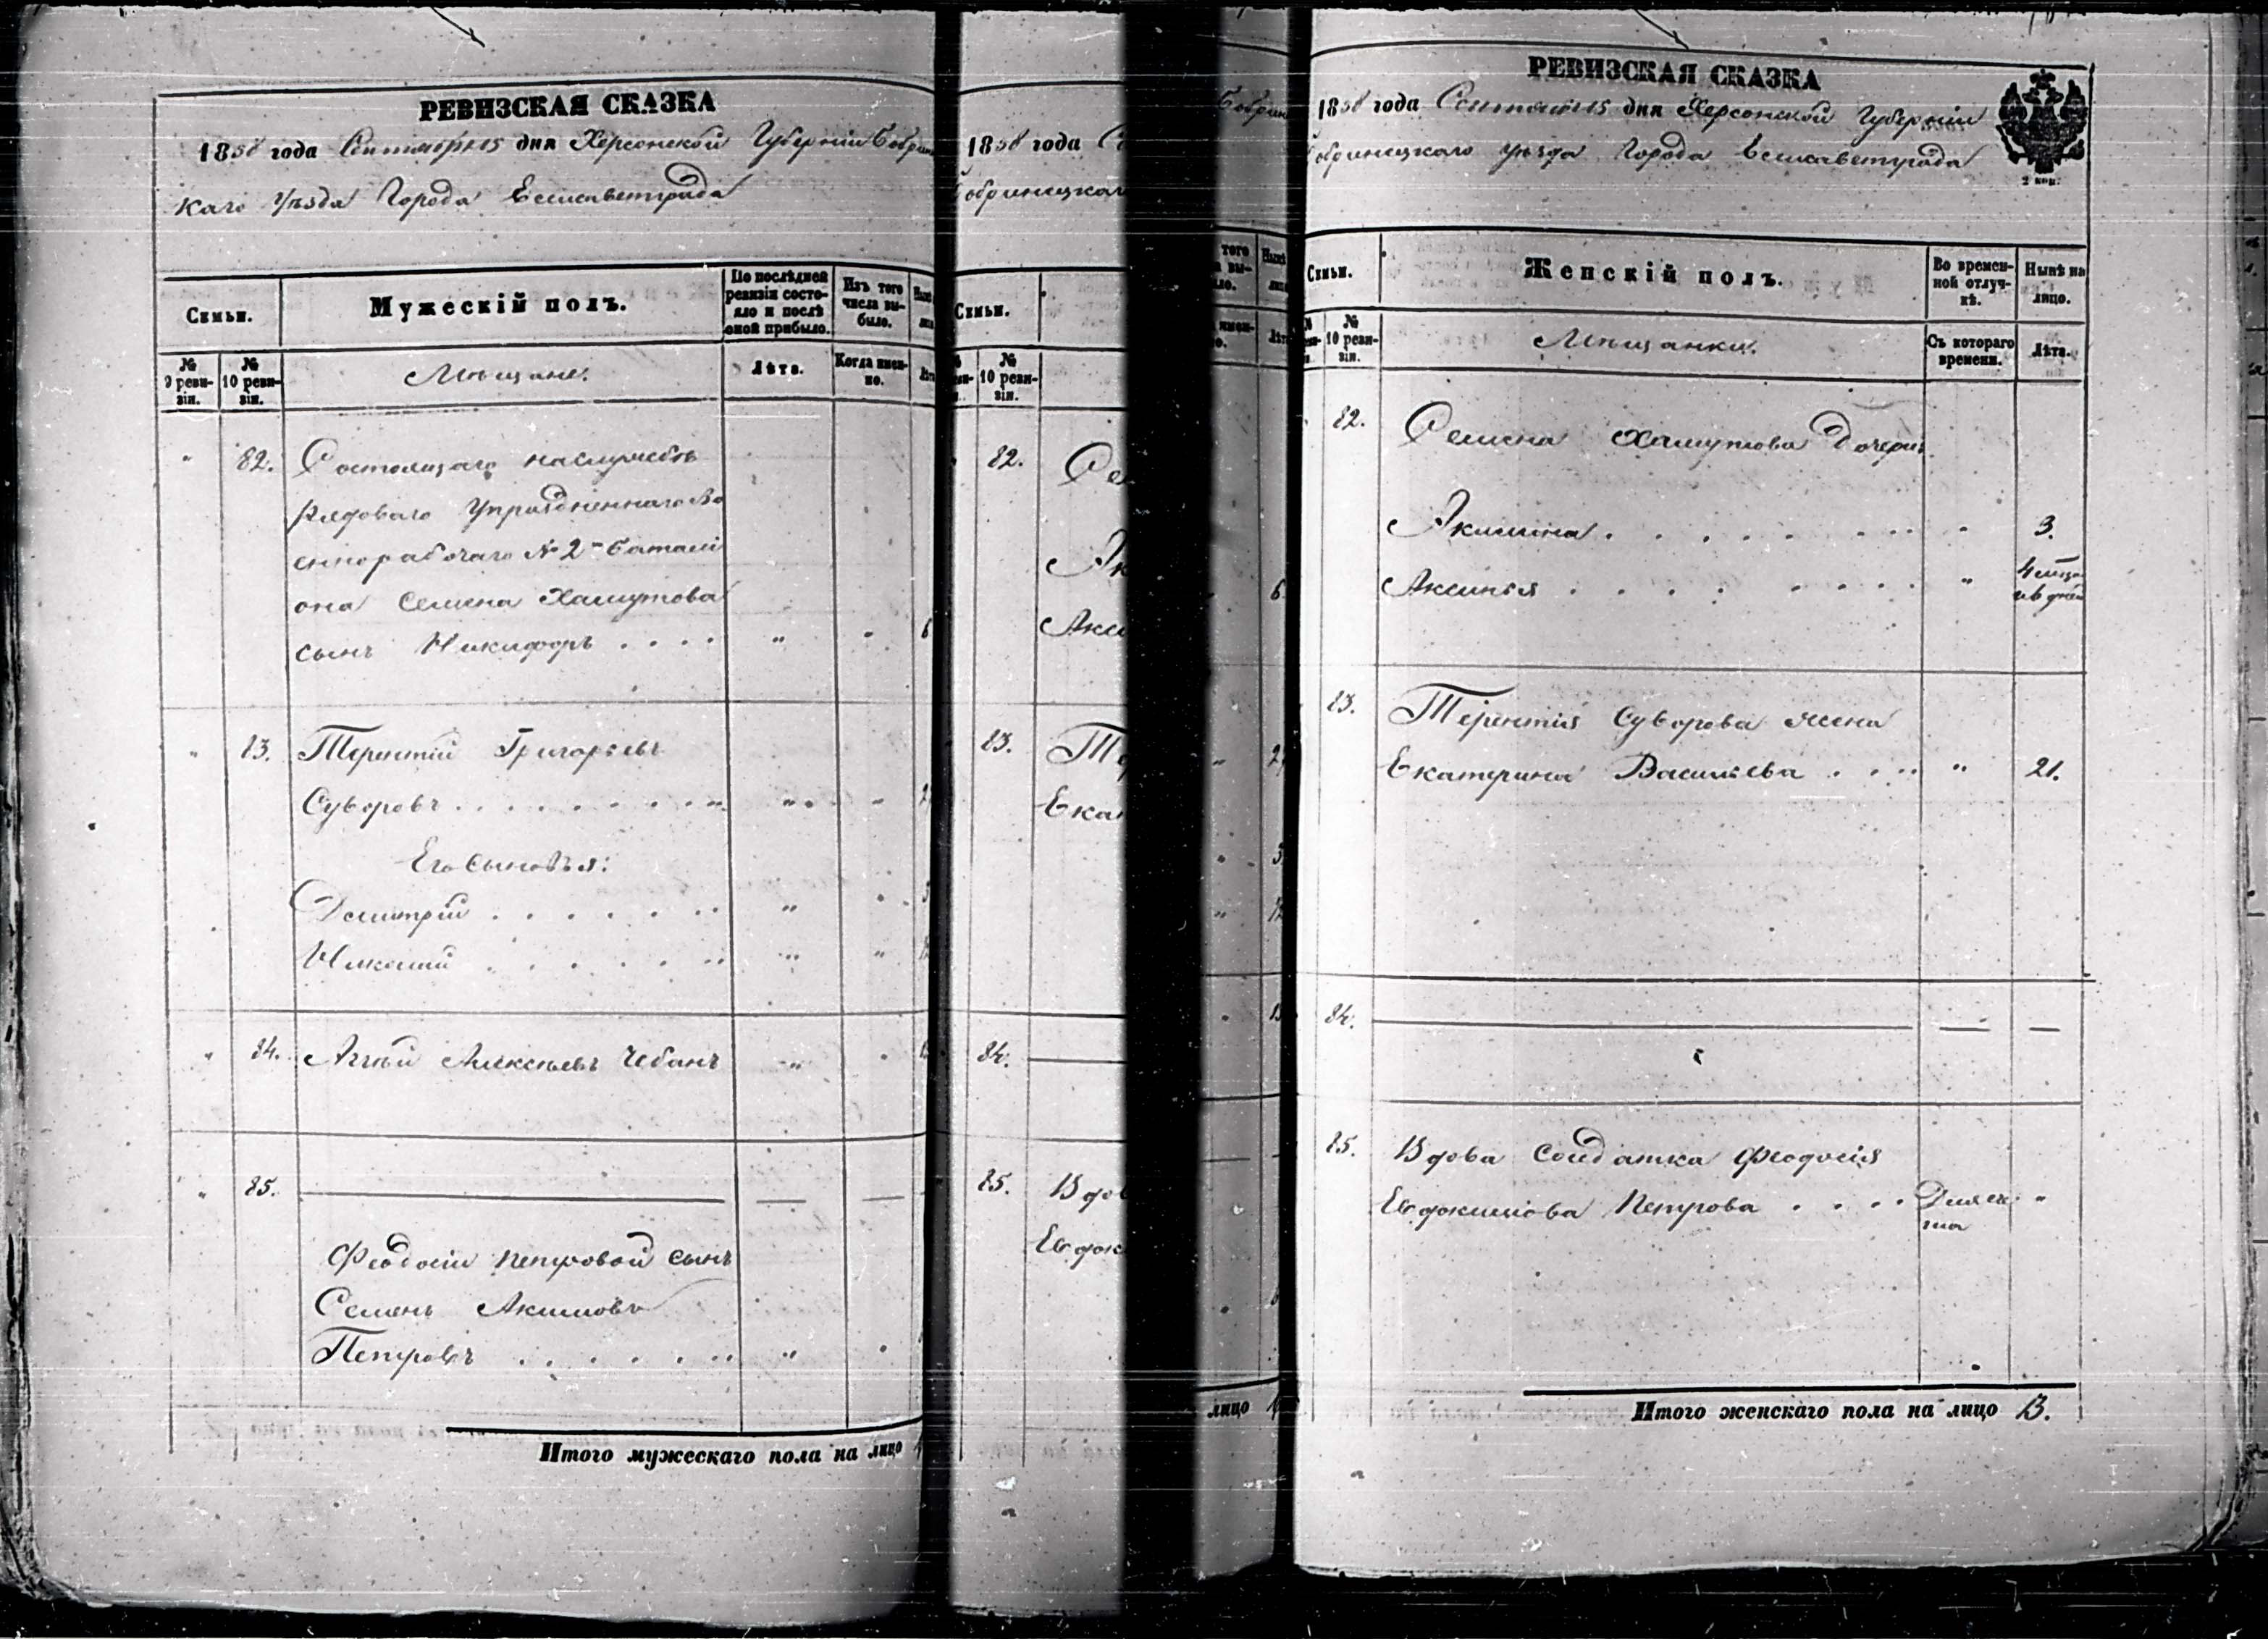 РЕВИЗСКАЯ СКАЗКА
1858 года Сентября 15 дня Херсонской Губерніи Бобрин
каго уѣзда Города Елисаветграда
Семьи.
Мужескій полъ.
По послѣдней ревизіи состояло и послѣ оной прибыло.
Изъ того числа выбыло.
№ 9 ревизіи.
№ 10 ревизіи.
Мѣщане.
Лѣта.
Когда именно.
" 82. Состоящаго на службѣ
рядоваго упраздненнаго Во
еннорабочаго № 2 баталі
она Семена Хамутова
сынъ Никифоръ . . . . " " 6
" 83. Терентій Григорьевъ
Суворовъ . . . . . . . " "
Его сыновья:
Дмитрій . . . . . . " "
Николай . . . . . . " "
" 84. Агѣй Алексѣевъ Чебанъ " "
" 85.
Феодосіи Петровой сынъ
Семенъ Акимовъ
Петровъ . . . . . . " "
Итого мужескаго пола на лицо
1858 года С
Бобринецкаг
Семьи.
№ 10 ревизіи.
82. Се
Ак
Акси
83. Те
Екат
84.
85. Вдов
Евдок
Бобрин
того
лицо
РЕВИЗСКАЯ СКАЗКА
1858 года Сентября 15 дня Херсонской Губерніи
Бобринецкаго уѣзда Города Елисаветграда
2 коп.
Семьи.
Женскій полъ.
Во временной отлучкѣ.
Нынѣ на лицо.
№ 10 ревизіи.
Мѣщанки.
Съ котораго времени.
Лѣта.
82. Семена Хамутова дочери
Акилина . . . . . . . . " 3.
Аксинья . . . . . . . . " 4 мѣся
и 6 дней
83. Терентія Суворова жена
Екатерина Васильева . . . . " 21.
84.
85. Вдова солдатка Феодосія
Евдокимова Петрова . . . . "
Итого женскаго пола на лицо 3.